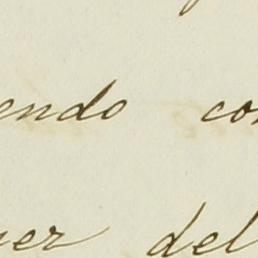 endo co
er del